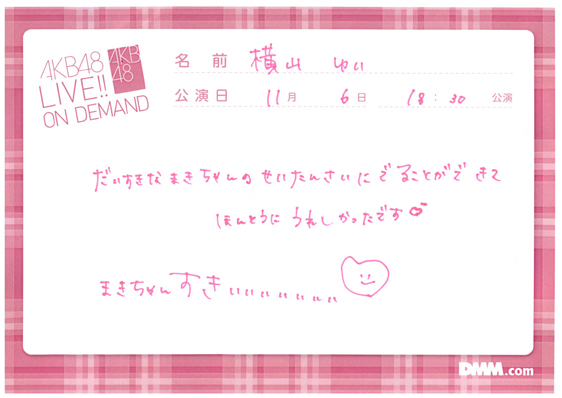 AKB48
LIVE!!
ON DEMAND
AKB
48
名前 横山 ゆい
公演日 11月 6日 18:30 公演
だいすきなまきちゃんのせいたんさいにでることができて
ほんとうにうれしかったです
まきちゃんすきぃぃぃぃぃぃぃ
DMM.com